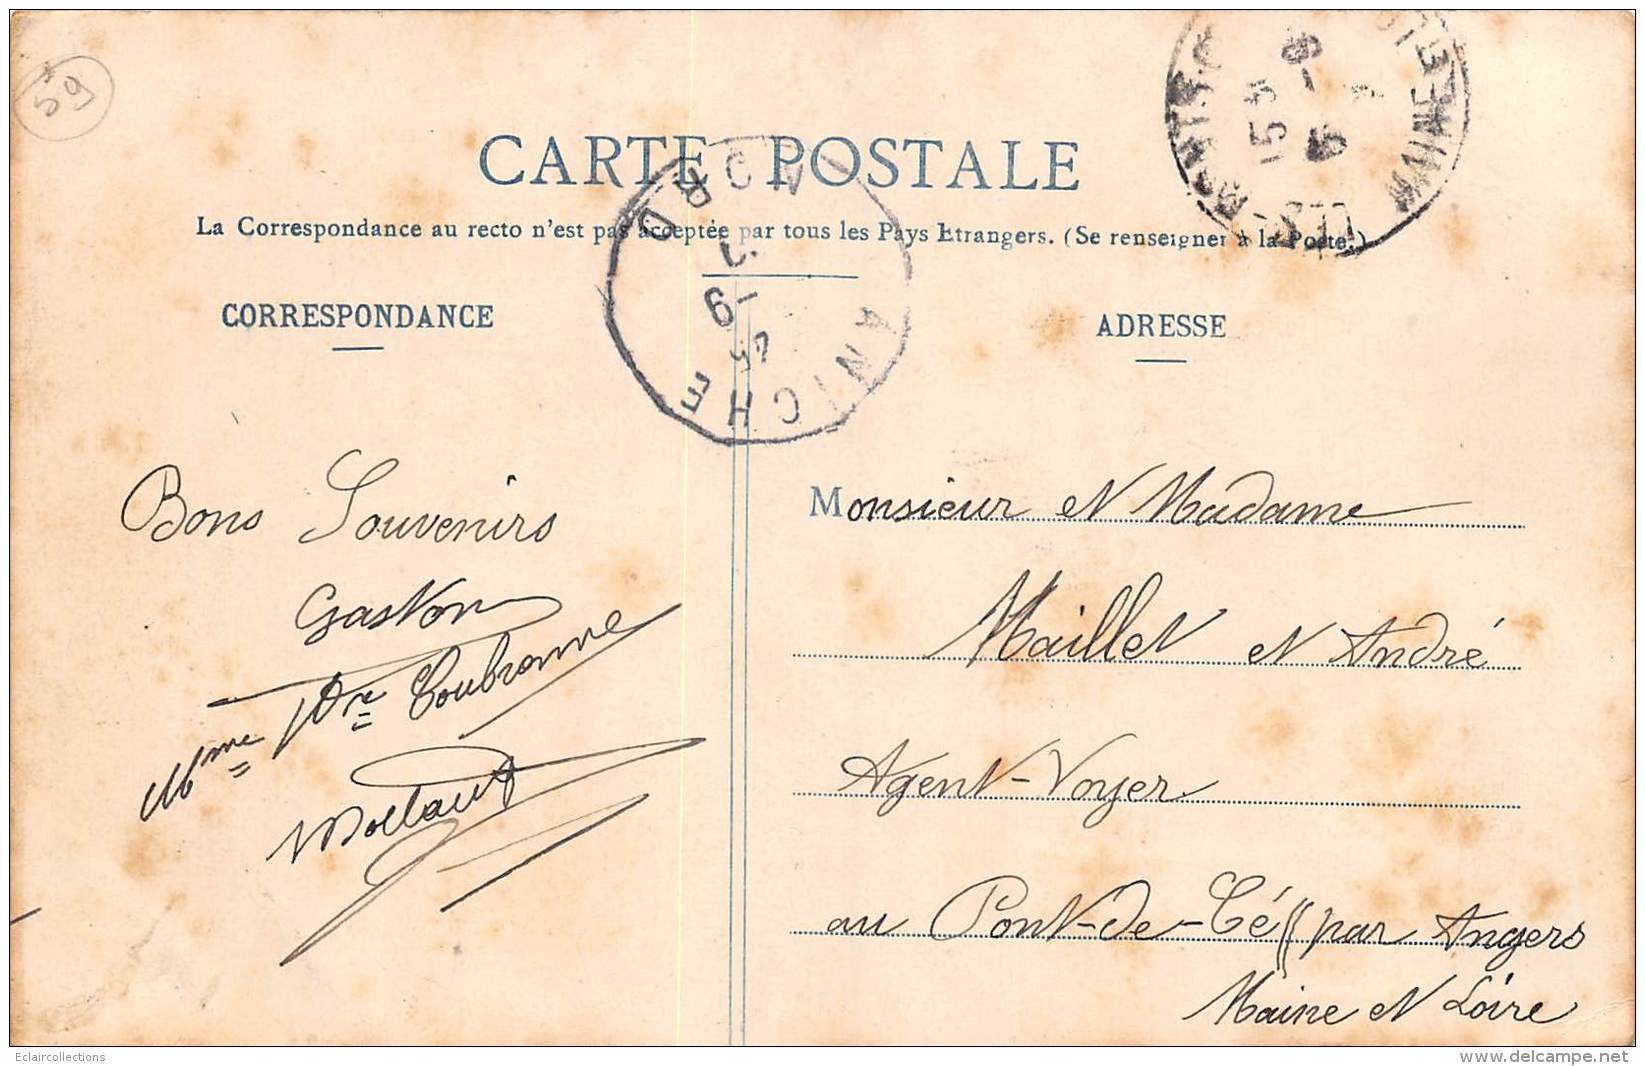 59
CARTE POSTALE
La Correspondance au recto n'est pas acceptée par tous les Pays Etrangers. (Se renseigner à la Poste.)
CORRESPONDANCE
ADRESSE
ANICHE
NORD
MAINE
Bons Souvenirs
Gaston
Mme
Monsieur et Madame
Maillet et André
Agent-Voyer
au Pont-de-Cé (par Angers
Maine et Loire
Eclaircollections
delcampe.net